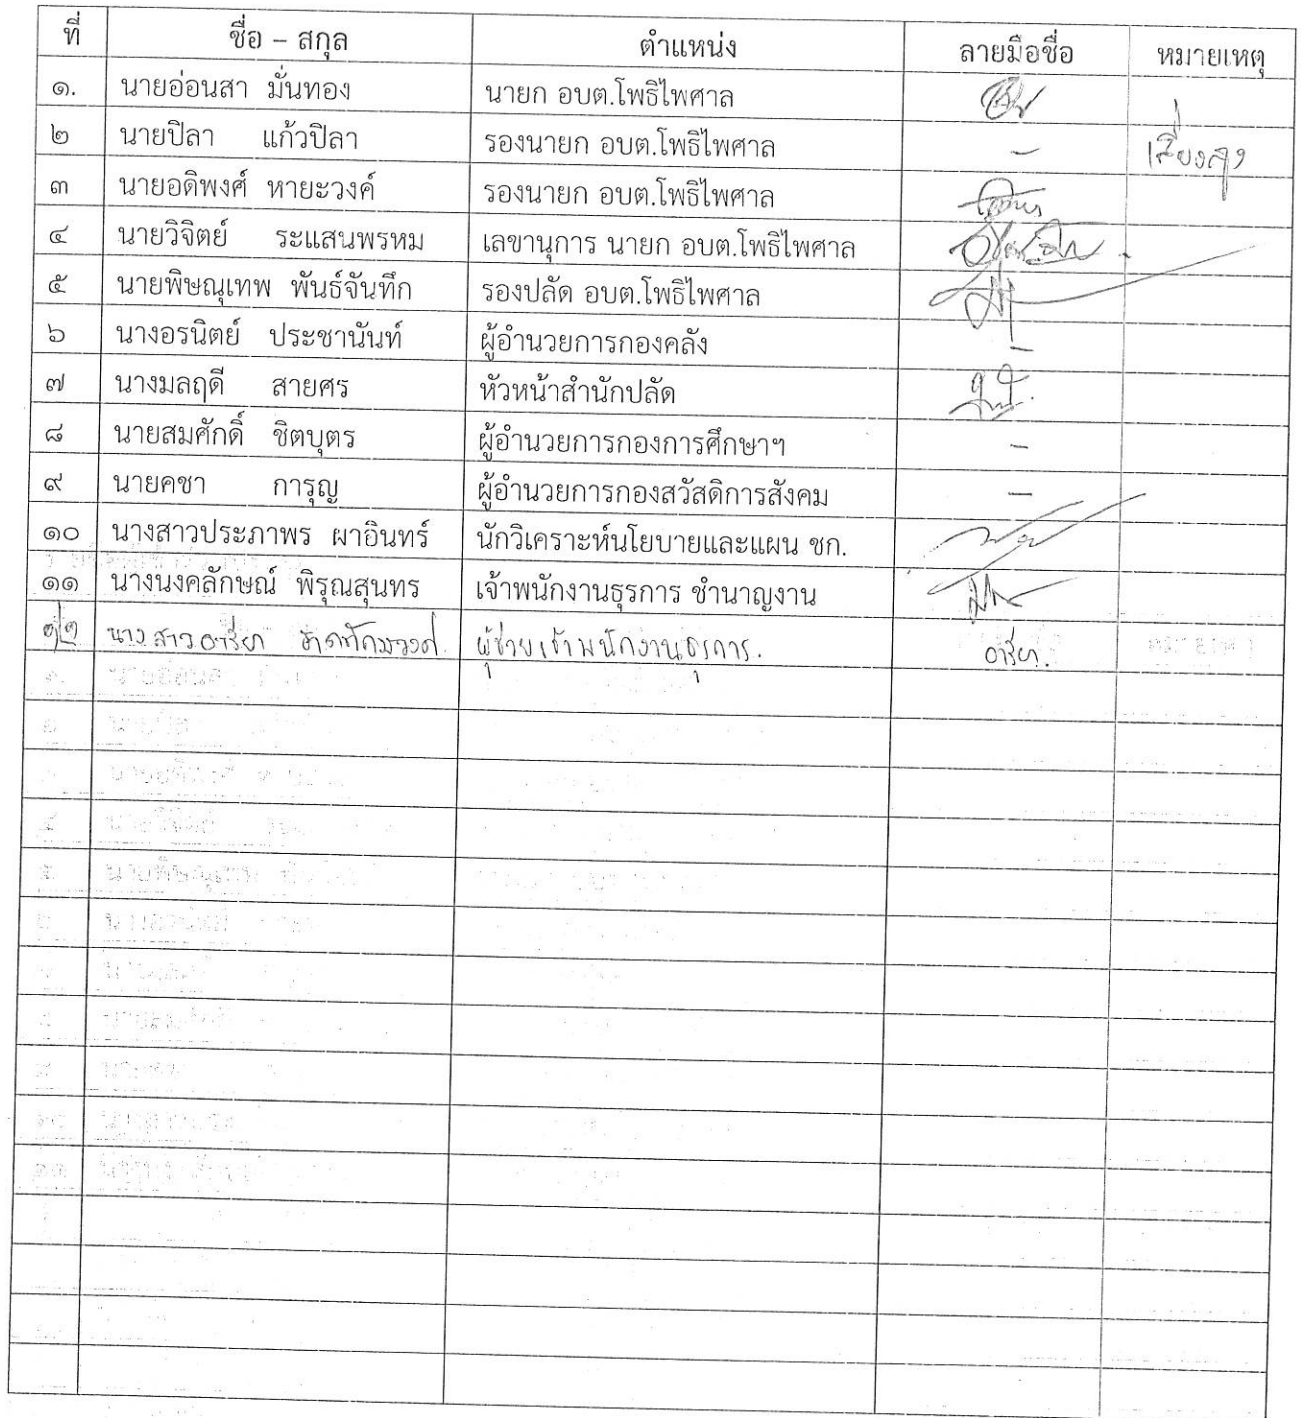 ที่ ชื่อ – สกุล ตำแหน่ง ลายมือชื่อ หมายเหตุ
๑. นายอ่อนสา มั่นทอง นายก อบต.โพธิไพศาล
๒ นายปิลา แก้วปิลา รองนายก อบต.โพธิไพศาล –
๓ นายอดิพงศ์ หายะวงค์ รองนายก อบต.โพธิไพศาล
๔ นายวิจิตย์ ระแสนพรหม เลขานุการ นายก อบต.โพธิไพศาล
๕ นายพิษณุเทพ พันธ์จันทึก รองปลัด อบต.โพธิไพศาล
๖ นางอรนิตย์ ประชานันท์ ผู้อำนวยการกองคลัง –
๗ นางมลฤดี สายศร หัวหน้าสำนักปลัด
๘ นายสมศักดิ์ ชิตบุตร ผู้อำนวยการกองการศึกษาฯ –
๙ นายคชา การุญ ผู้อำนวยการกองสวัสดิการสังคม –
๑๐ นางสาวประภาพร ผาอินทร์ นักวิเคราะห์นโยบายและแผน ชก.
๑๑ นางนงคลักษณ์ พิรุณสุนทร เจ้าพนักงานธุรการ ชำนาญงาน
๑๒ นางสาวอาริยา ผู้ช่วยเจ้าพนักงานธุรการ. อาริยา.